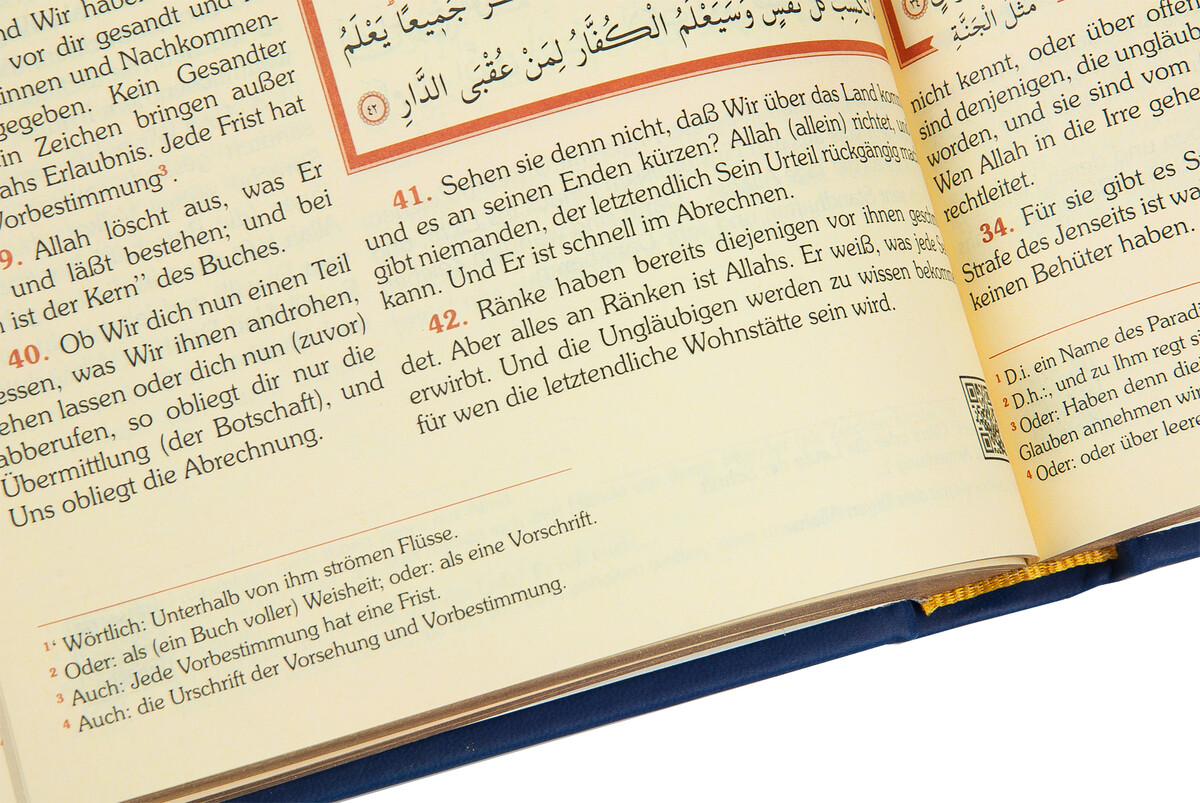 nd Wir haben
vor dir gesandt und i
innen und Nachkommen-
gegeben. Kein Gesandter
in Zeichen bringen außer
ahs Erlaubnis. Jede Frist hat
Vorbestimmung³.
9. Allah löscht aus, was Er
und läßt bestehen; und bei
n ist der Kern” des Buches.
40. Ob Wir dich nun einen Teil
essen, was Wir ihnen androhen,
ehen lassen oder dich nun (zuvor)
abberufen, so obliegt dir nur die
Übermittlung (der Botschaft), und
Uns obliegt die Abrechnung.
جَمِيعًا يَعْلَمُ
كُلُّ نَفْسٍ وَسَيَعْلَمُ الْكُفَّارُ لِمَنْ عُقْبَى الدَّارِ ٤٢
41. Sehen sie denn nicht, daß Wir über das Land kom
und es an seinen Enden kürzen? Allah (allein) richtet, un
gibt niemanden, der letztendlich Sein Urteil rückgängig mac
kann. Und Er ist schnell im Abrechnen.
42. Ränke haben bereits diejenigen vor ihnen geschm
det. Aber alles an Ränken ist Allahs. Er weiß, was jede Se
erwirbt. Und die Ungläubigen werden zu wissen bekomm
für wen die letztendliche Wohnstätte sein wird.
1‘ Wörtlich: Unterhalb von ihm strömen Flüsse.
2 Oder: als (ein Buch voller) Weisheit; oder: als eine Vorschrift.
3 Auch: Jede Vorbestimmung hat eine Frist.
4 Auch: die Urschrift der Vorsehung und Vorbestimmung.
مَثَلُ الْجَنَّةِ
nicht kennt, oder über offen
sind denjenigen, die ungläub
worden, und sie sind vom
Wen Allah in die Irre gehe
rechtleitet.
34. Für sie gibt es S
Strafe des Jenseits ist wa
keinen Behüter haben.
1 D.i. ein Name des Paradi
2 D.h.:, und zu Ihm regt si
3 Oder: Haben denn die
Glauben annehmen wir
4 Oder: oder über leere